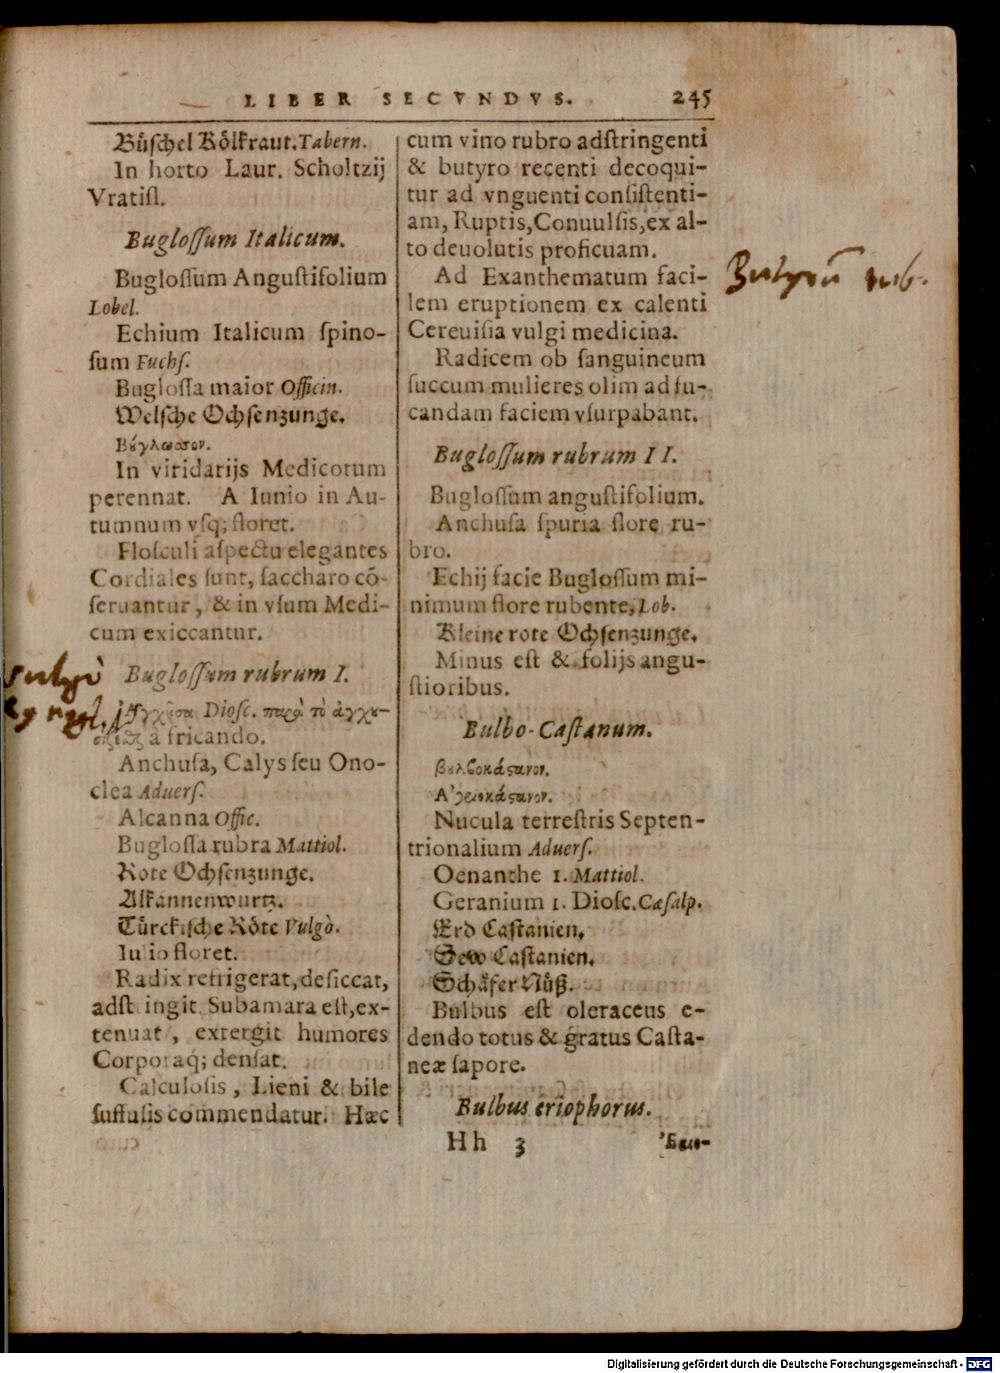 LIBER SECVNDVS. 245
Büſchel Kölkraut. Tabern.
In horto Laur. Scholtzij
Vratiſl.
Bugloſſum Italicum.
Bugloſſum Anguſtifolium
Lobel.
Echium Italicum ſpino-
ſum Fuchſ.
Bugloſſa maior Officin.
Welſche Ochſenzunge.
Βύγλωσσον.
In viridarijs Medicorum
perennat. A Iunio in Au-
tumnum vſq; floret.
Floſculi aſpectu elegantes
Cordiales ſunt, ſaccharo cō-
ſeruantur, & in vſum Medi-
cum exiccantur.
Bugloſſum rubrum I.
Ἄγχουσα Dioſc. παρὰ τὸ ἀγχο-
à fricando.
Anchuſa, Calys ſeu Ono-
clea Aduerſ.
Alcanna Offic.
Bugloſſa rubra Mattiol.
Rote Ochſenzunge.
Alkannenwurtz.
Türckiſche Röte Vulgò.
Iuio floret.
Radix refrigerat, deſiccat,
adſtingit. Subamara eſt, ex-
tenuat, extergit humores
Corporaq; denſat.
Calculoſis, Lieni & bile
ſuffuſis commendatur. Hæc
cum vino rubro adſtringenti
& butyro recenti decoqui-
tur ad vnguenti conſiſtenti-
am, Ruptis, Conuulſis, ex al-
to deuolutis proficuam.
Ad Exanthematum faci-
lem eruptionem ex calenti
Cereuiſia vulgi medicina.
Radicem ob ſanguineum
ſuccum mulieres olim ad fu-
candam faciem vſurpabant.
Butyrū rub.
Bugloſſum rubrum II.
Bugloſſum anguſtifolium.
Anchuſa ſpuria flore ru-
bro.
Echij facie Bugloſſum mi-
nimum flore rubente, Lob.
Kleine rote Ochſenzunge.
Minus eſt & folijs angu-
ſtioribus.
Bulbo-Caſtanum.
βολβοκάστανον.
Ἀγριοκάστανον.
Nucula terreſtris Septen-
trionalium Aduerſ.
Oenanthe 1. Mattiol.
Geranium 1. Dioſc. Cæſalp.
Erd Caſtanien.
Sew Caſtanien.
Schäfer Nüß.
Bulbus eſt oleraceus e-
dendo totus & gratus Caſta-
neæ ſapore.
Bulbus eriophorus.
Hh 3
Digitalisierung gefördert durch die Deutsche Forschungsgemeinschaft - DFG